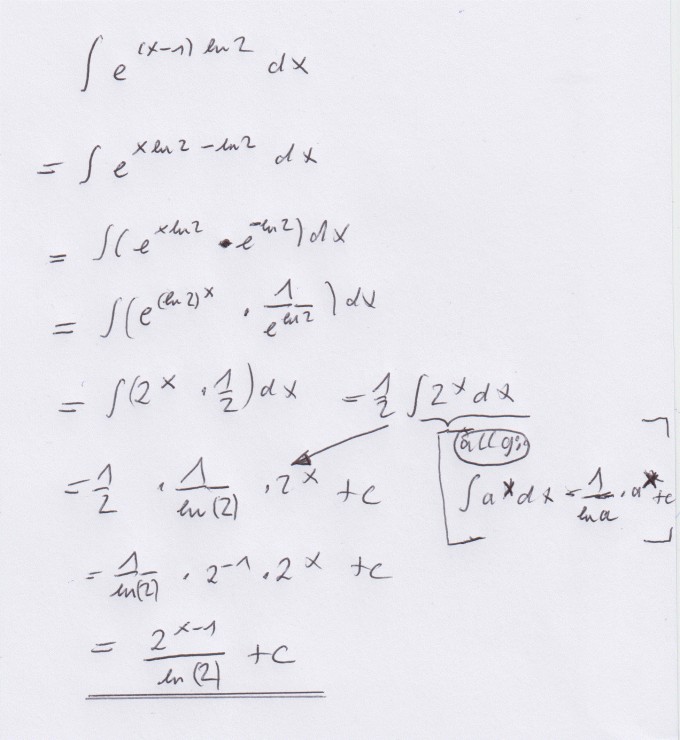 ∫ e^{(x-1) ln 2} dx
= ∫ e^{x ln 2 - ln 2} dx
= ∫ (e^{x ln 2} · e^{-ln 2}) dx
= ∫ (e^{(ln 2) x} · \frac{1}{e^{ln 2}}) dx
= ∫ (2^x · \frac{1}{2}) dx = \frac{1}{2} ∫ 2^x dx
allg:
= \frac{1}{2} · \frac{1}{ln(2)} · 2^x + c
[∫ a^x dx = \frac{1}{ln a} · a^x + c]
= \frac{1}{ln(2)} · 2^{-1} · 2^x + c
= \frac{2^{x-1}}{ln(2)} + c